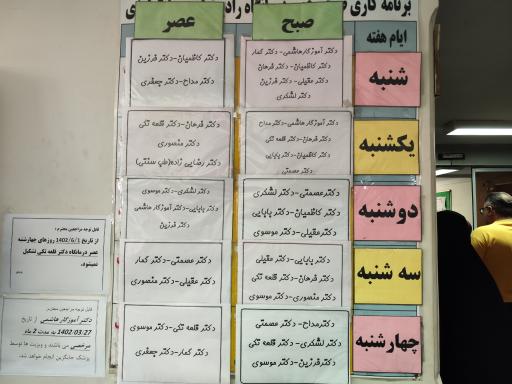 برنامه کاری
ایام هفته
صبح
عصر
شنبه
دکتر آموزگارهاشمی-دکتر کمار
دکتر کاظمیان-دکتر فرهان
دکتر عقیلی-دکتر فرزین
دکتر لشکری
دکتر کاظمیان-دکتر فرزین
دکتر مداح-دکتر جعفری
یکشنبه
دکتر آموزگارهاشمی-دکتر مداح
دکتر فرهان-دکتر قلعه تکی
دکتر کاظمیان-دکتر پاپایی
دکتر عصمتی
دکتر فرهان-دکتر قلعه تکی
دکتر منصوری
دکتر رضایی زاده(طب سنتی)
دوشنبه
دکتر عصمتی-دکتر لشکری
دکتر کاظمیان-دکتر پاپایی
دکتر عقیلی-دکتر موسوی
دکتر لشکری-دکتر موسوی
دکتر کاظمیان-دکتر آموزگار هاشمی
دکتر فرزین
سه شنبه
دکتر پاپایی-دکتر عقیلی
دکتر فرهان-دکتر قلعه تکی
دکتر منصوری-دکتر موسوی
دکتر عصمتی-دکتر کمار
دکتر عقیلی-دکتر منصوری
چهارشنبه
دکتر مداح-دکتر عصمتی
دکتر لشکری-دکتر قلعه تکی
دکتر فرزین-دکتر موسوی
دکتر قلعه تکی-دکتر موسوی
دکتر کمار-دکتر جعفری
قابل توجه مراجعین محترم:
از تاریخ 1402/6/1 روزهای چهارشنبه
عصر درمانگاه دکتر قلعه تکی تشکیل
نمیشود.
قابل توجه مراجعین محترم
دکتر آموزگار هاشمی از تاریخ
1402-03-27 به مدت 2 ماه
مرخصی می باشند و ویزیت ها توسط
پزشک جایگزین انجام خواهد شد.